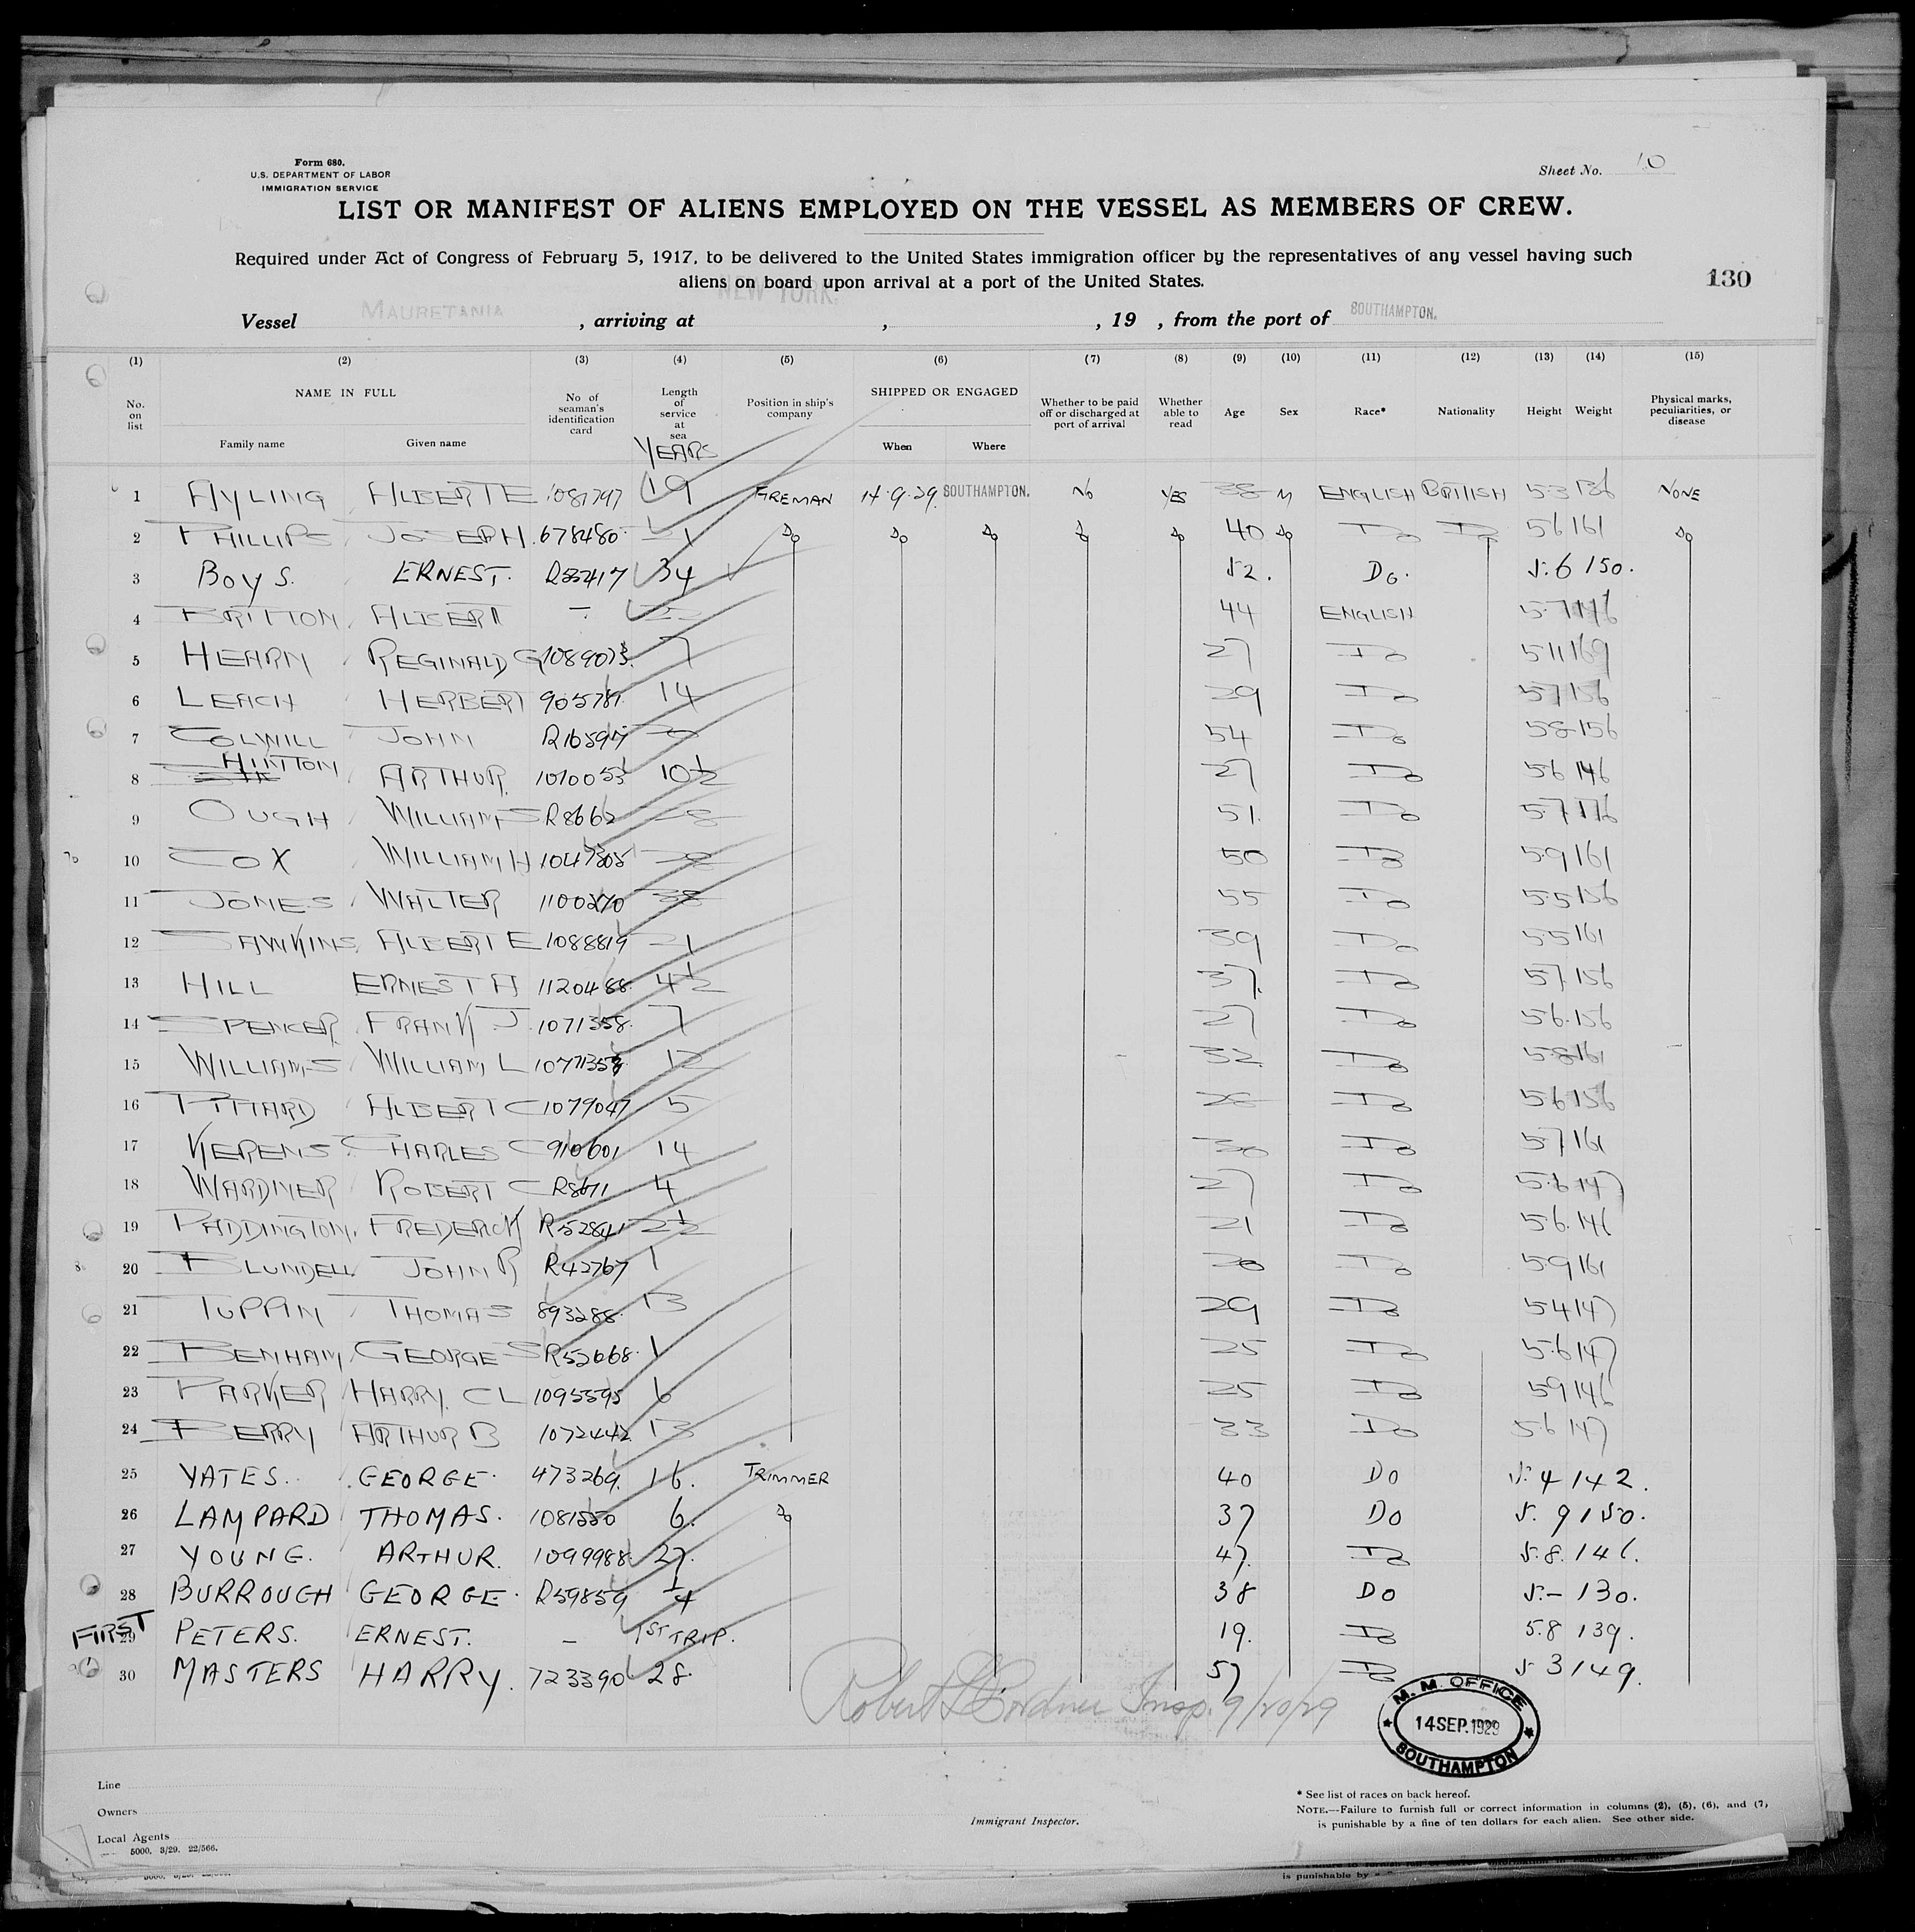 Form 680.
U.S. DEPARTMENT OF LABOR
IMMIGRATION SERVICE
Sheet No. 10
LIST OR MANIFEST OF ALIENS EMPLOYED ON THE VESSEL AS MEMBERS OF CREW.
Required under Act of Congress of February 5, 1917, to be delivered to the United States immigration officer by the representatives of any vessel having such
aliens on board upon arrival at a port of the United States.
130
Vessel MAURETANIA, arriving at NEW YORK. , , 19 , from the port of SOUTHAMPTON.
(1) (2) (3) (4) (5) (6) (7) (8) (9) (10) (11) (12) (13) (14) (15)
No. on list NAME IN FULL Family name Given name No of seaman's identification card Length of service at sea YEARS Position in ship's company SHIPPED OR ENGAGED When Where Whether to be paid off or discharged at port of arrival Whether able to read Age Sex Race* Nationality Height Weight Physical marks, peculiarities, or disease
1 AYLING ALBERT E 1081797 19 FIREMAN 14.9.29 SOUTHAMPTON. NO YES 38 M ENGLISH BRITISH 5.3 136 NONE
2 PHILLIPS JOSEPH 678480 21 Do Do Do Do Do 40 Do Do Do 5 6 161 Do
3 BOYS. ERNEST. R33417 34 52. Do. 5.6 150.
4 BRITTON ALBERT - 44 ENGLISH 5.7 146
5 HEARN REGINALD G 1089073 7 27 Do 5 11 169
6 LEACH HERBERT 905781 14 29 Do 5 7 156
7 COLWILL JOHN R16597 54 Do 5 8 156
8 HUTTON ARTHUR 1010053 10½ 27 Do 5 6 146
9 OUGH WILLIAM S R8662 28 51. Do 5.7 176
10 COX WILLIAM H 1047805 50 Do 5.9 161
11 JONES WALTER 1100270 38 55 Do 5.5 156
12 ALBERT E 1088819 21 39 Do 5.5 161
13 HILL ERNEST A 1120488 4½ 37. Do 5.7. 156
14 SPENCER FRANK J. 1071358. 7 27 Do 5.6. 156
15 WILLIAMS WILLIAM L 12 32. Do 5.8 161
16 PITTARD ALBERT C 1079047 5 28 Do 5.6 156
17 KERENS CHARLES C 910601 14 30 Do 5.7 161
18 WARDNER ROBERT C R8671 4 27 Do 5.6 147
19 PADDINGTON. FREDERICK R52841 2½ 21 Do 5 6. 146
20 BLUNDELL JOHN R R42767 1 Do 5.9 161
21 TUPPIN THOMAS 893288. 13 29 Do 5 4 147
22 BENHAM GEORGE S R52668. 1 25 Do 5.6 147
23 PARKER HARRY. C L 1095595 6 25 Do 5 9 146
24 BERRY ARTHUR B 1072442 13 33 Do 5.6 147
25 YATES. GEORGE. 473269. 16. TRIMMER 40 Do 5.4 142.
26 LAMPARD THOMAS. 1081550 6. Do 37 Do 5.9 150.
27 YOUNG. ARTHUR. 1099988 27. 47. Do 5.8. 146.
28 BURROUGH GEORGE. R59859 ¼ 38 Do 5.- 130.
FIRST 29 PETERS. ERNEST. - 1ST TRIP. 19. Do 5.8 139.
30 MASTERS HARRY. 723390 28. 57 Do 5 3 149.
Robert Insp. 9/20/29
M. M. OFFICE
14 SEP. 1929
SOUTHAMPTON
Line
Owners
Local Agents
5000. 3/29. 22/566.
Immigrant Inspector.
* See list of races on back hereof.
NOTE.—Failure to furnish full or correct information in columns (2), (5), (6), and (7,
is punishable by a fine of ten dollars for each alien. See other side.
is punishable by a